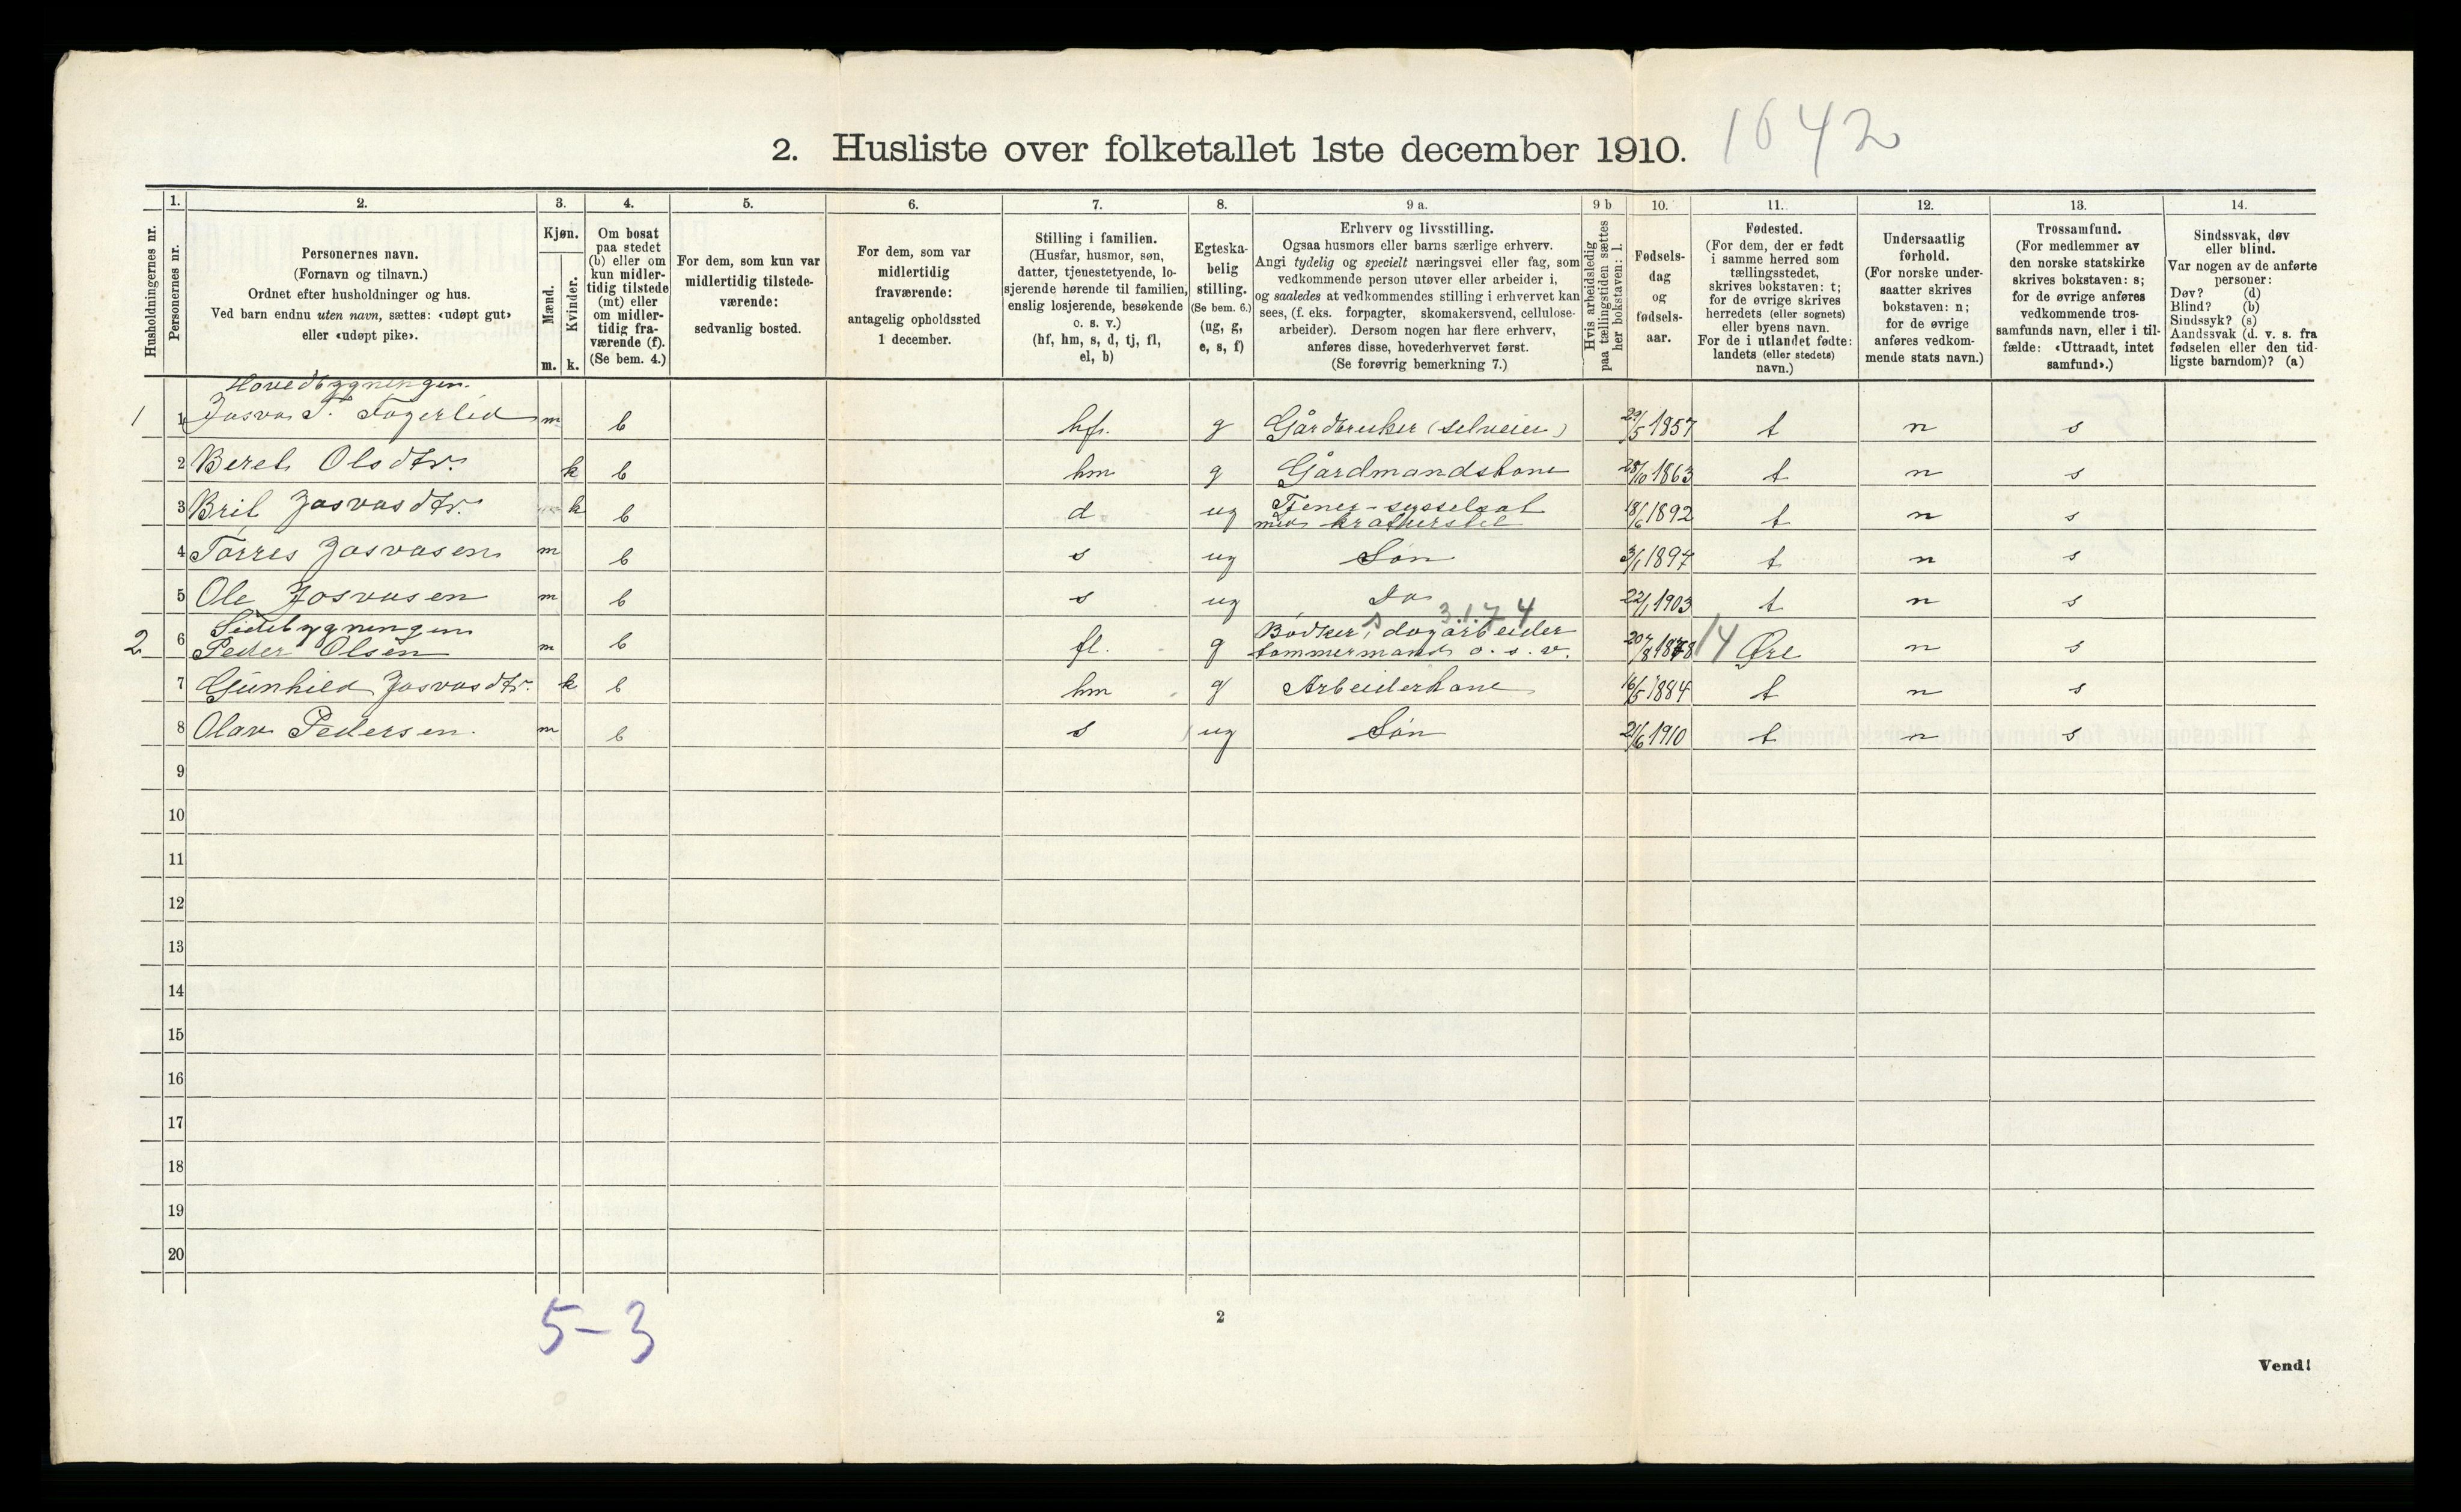 2. Husliste over folketallet 1ste december 1910. 1642
1. 2. 3. 4. 5. 6. 7. 8. 9 a. 9 b 10. 11. 12. 13. 14.
Husholdningernes nr.
Personernes nr.
Personernes navn.
(Fornavn og tilnavn.)
Ordnet efter husholdninger og hus.
Ved barn endnu uten navn, sættes: «udøpt gut»
eller «udøpt pike».
Kjøn.
Mænd.
Kvinder.
m. k.
Om bosat
paa stedet
(b) eller om
kun midler-
tidig tilstede
(mt) eller
om midler-
tidig fra-
værende (f).
(Se bem. 4.)
For dem, som kun var
midlertidig tilstede-
værende:
sedvanlig bosted.
For dem, som var
midlertidig
fraværende:
antagelig opholdssted
1 december.
Stilling i familien.
(Husfar, husmor, søn,
datter, tjenestetyende, lo-
sjerende hørende til familien,
enslig losjerende, besøkende
o. s. v.)
(hf, hm, s, d, tj, fl,
el, b)
Egteska-
belig
stilling.
(Se bem. 6.)
(ug, g,
e, s, f)
Erhverv og livsstilling.
Ogsaa husmors eller barns særlige erhverv.
Angi tydelig og specielt næringsvei eller fag, som
vedkommende person utøver eller arbeider i,
og saaledes at vedkommendes stilling i erhvervet kan
sees, (f. eks. forpagter, skomakersvend, cellulose-
arbeider). Dersom nogen har flere erhverv,
anføres disse, hovederhvervet først.
(Se forøvrig bemerkning 7.)
Hvis arbeidsledig
paa tællingstiden sættes
her bokstaven: l.
Fødsels-
dag
og
fødsels-
aar.
Fødested.
(For dem, der er født
i samme herred som
tællingsstedet,
skrives bokstaven: t;
for de øvrige skrives
herredets (eller sognets)
eller byens navn.
For de i utlandet fødte:
landets (eller stedets)
navn.)
Undersaatlig
forhold.
(For norske under-
saatter skrives
bokstaven: n;
for de øvrige
anføres vedkom-
mende stats navn.)
Trossamfund.
(For medlemmer av
den norske statskirke
skrives bokstaven: s;
for de øvrige anføres
vedkommende tros-
samfunds navn, eller i til-
fælde: «Uttraadt, intet
samfund».)
Sindssvak, døv
eller blind.
Var nogen av de anførte
personer:
Døv? (d)
Blind? (b)
Sindssyk? (s)
Aandssvak (d. v. s. fra
fødselen eller den tid-
ligste barndom)? (a)
Hovedbygningen.
1 1 Josva T. Fagerlid m b hf. g Gårdbruker (selveier) 29/5 1857 t n s
2 Beret Olsdtr. k b hm g Gårdmandskone 28/10 1863 t n s
3 Brit Josvasdtr. k b d ug Tjener-sysselsat
med kreaturstel 18/6 1892 t n s
4 Torres Josvasen m b s ug Søn 3/1 1897 t n s
5 Ole Josvasen m b s ug do 22/1 1903 t n s
Sidebygningen 3.1.7 4
2 6 Peder Olsen m b fl. g Bødker, dagarbeider
tømmermand o. s. v. 20/8 1878 14 Øre n s
7 Gunhild Josvasdtr. k b hm g Arbeiderkone 16/5 1884 t n s
8 Olav Pedersen. m b s ug Søn 21/6 1910 t n s
9
10
11
12
13
14
15
16
17
18
19
20
5-3
2
Vend!